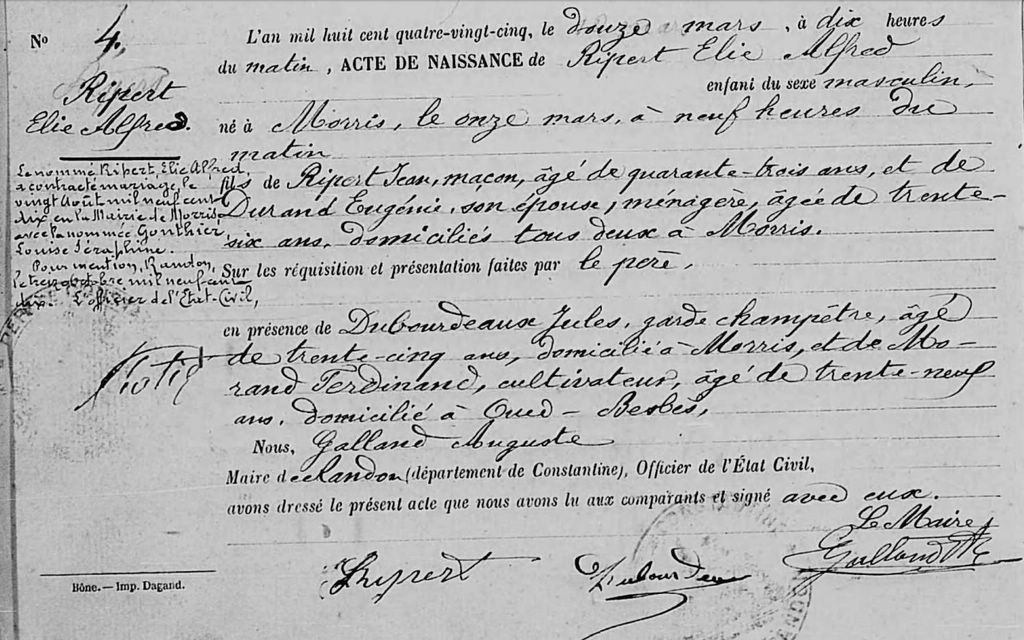 N° 4.
Ripert
Elie Alfred.
Le nommé Ripert, Elie Alfred,
a contracté mariage, le
vingt Août mil neuf cent
dix en la Mairie de Morris
avec la nommée Gonthier,
Louise Séraphine.
Pour mention, Randon,
le treize octobre mil neuf cent
dix. L'officier de l'Etat-Civil,
L'an mil huit cent quatre-vingt-cinq, le douze mars, à dix heures
du matin, ACTE DE NAISSANCE de Ripert Elie Alfred
enfant du sexe masculin,
né à Morris, le onze mars, à neuf heures du
matin
fils de Ripert Jean, maçon, âgé de quarante-trois ans, et de
Durand Eugénie, son épouse, ménagère, âgée de trente-
six ans, domiciliés tous deux à Morris.
Sur les réquisition et présentation faites par le père,
en présence de Dubourdeaux Jules, garde champêtre, âgé
de trente-cinq ans, domicilié à Morris, et de Mo-
rand Ferdinand, cultivateur, âgé de trente-neuf
ans, domicilié à Oued-Besbès,
Nous, Galland Auguste
Maire de Randon (département de Constantine), Officier de l'État Civil,
avons dressé le présent acte que nous avons lu aux comparants et signé avec eux.
Le Maire
Ripert Dubourdeau Galland
Bône. — Imp. Dagand.